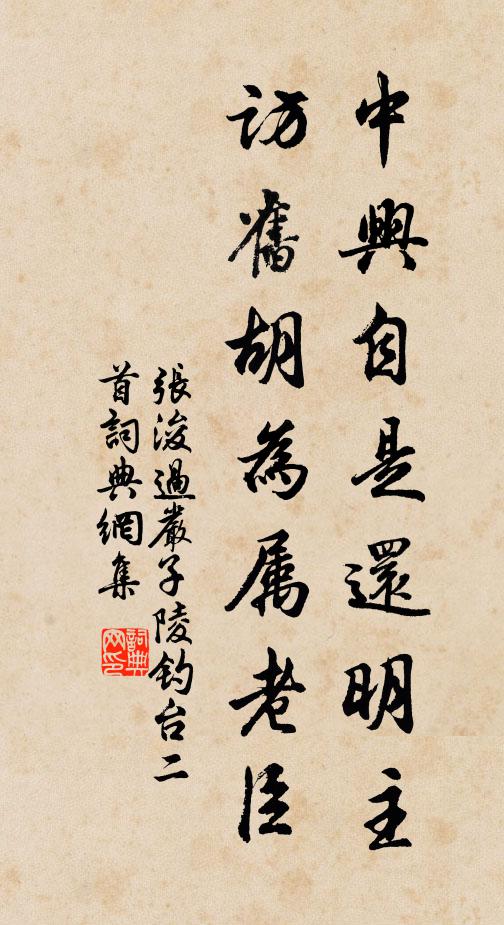 中興自是還明主
訪舊胡為属老臣
張浚過嚴子陵釣台二
首詞典網集
詞典网印